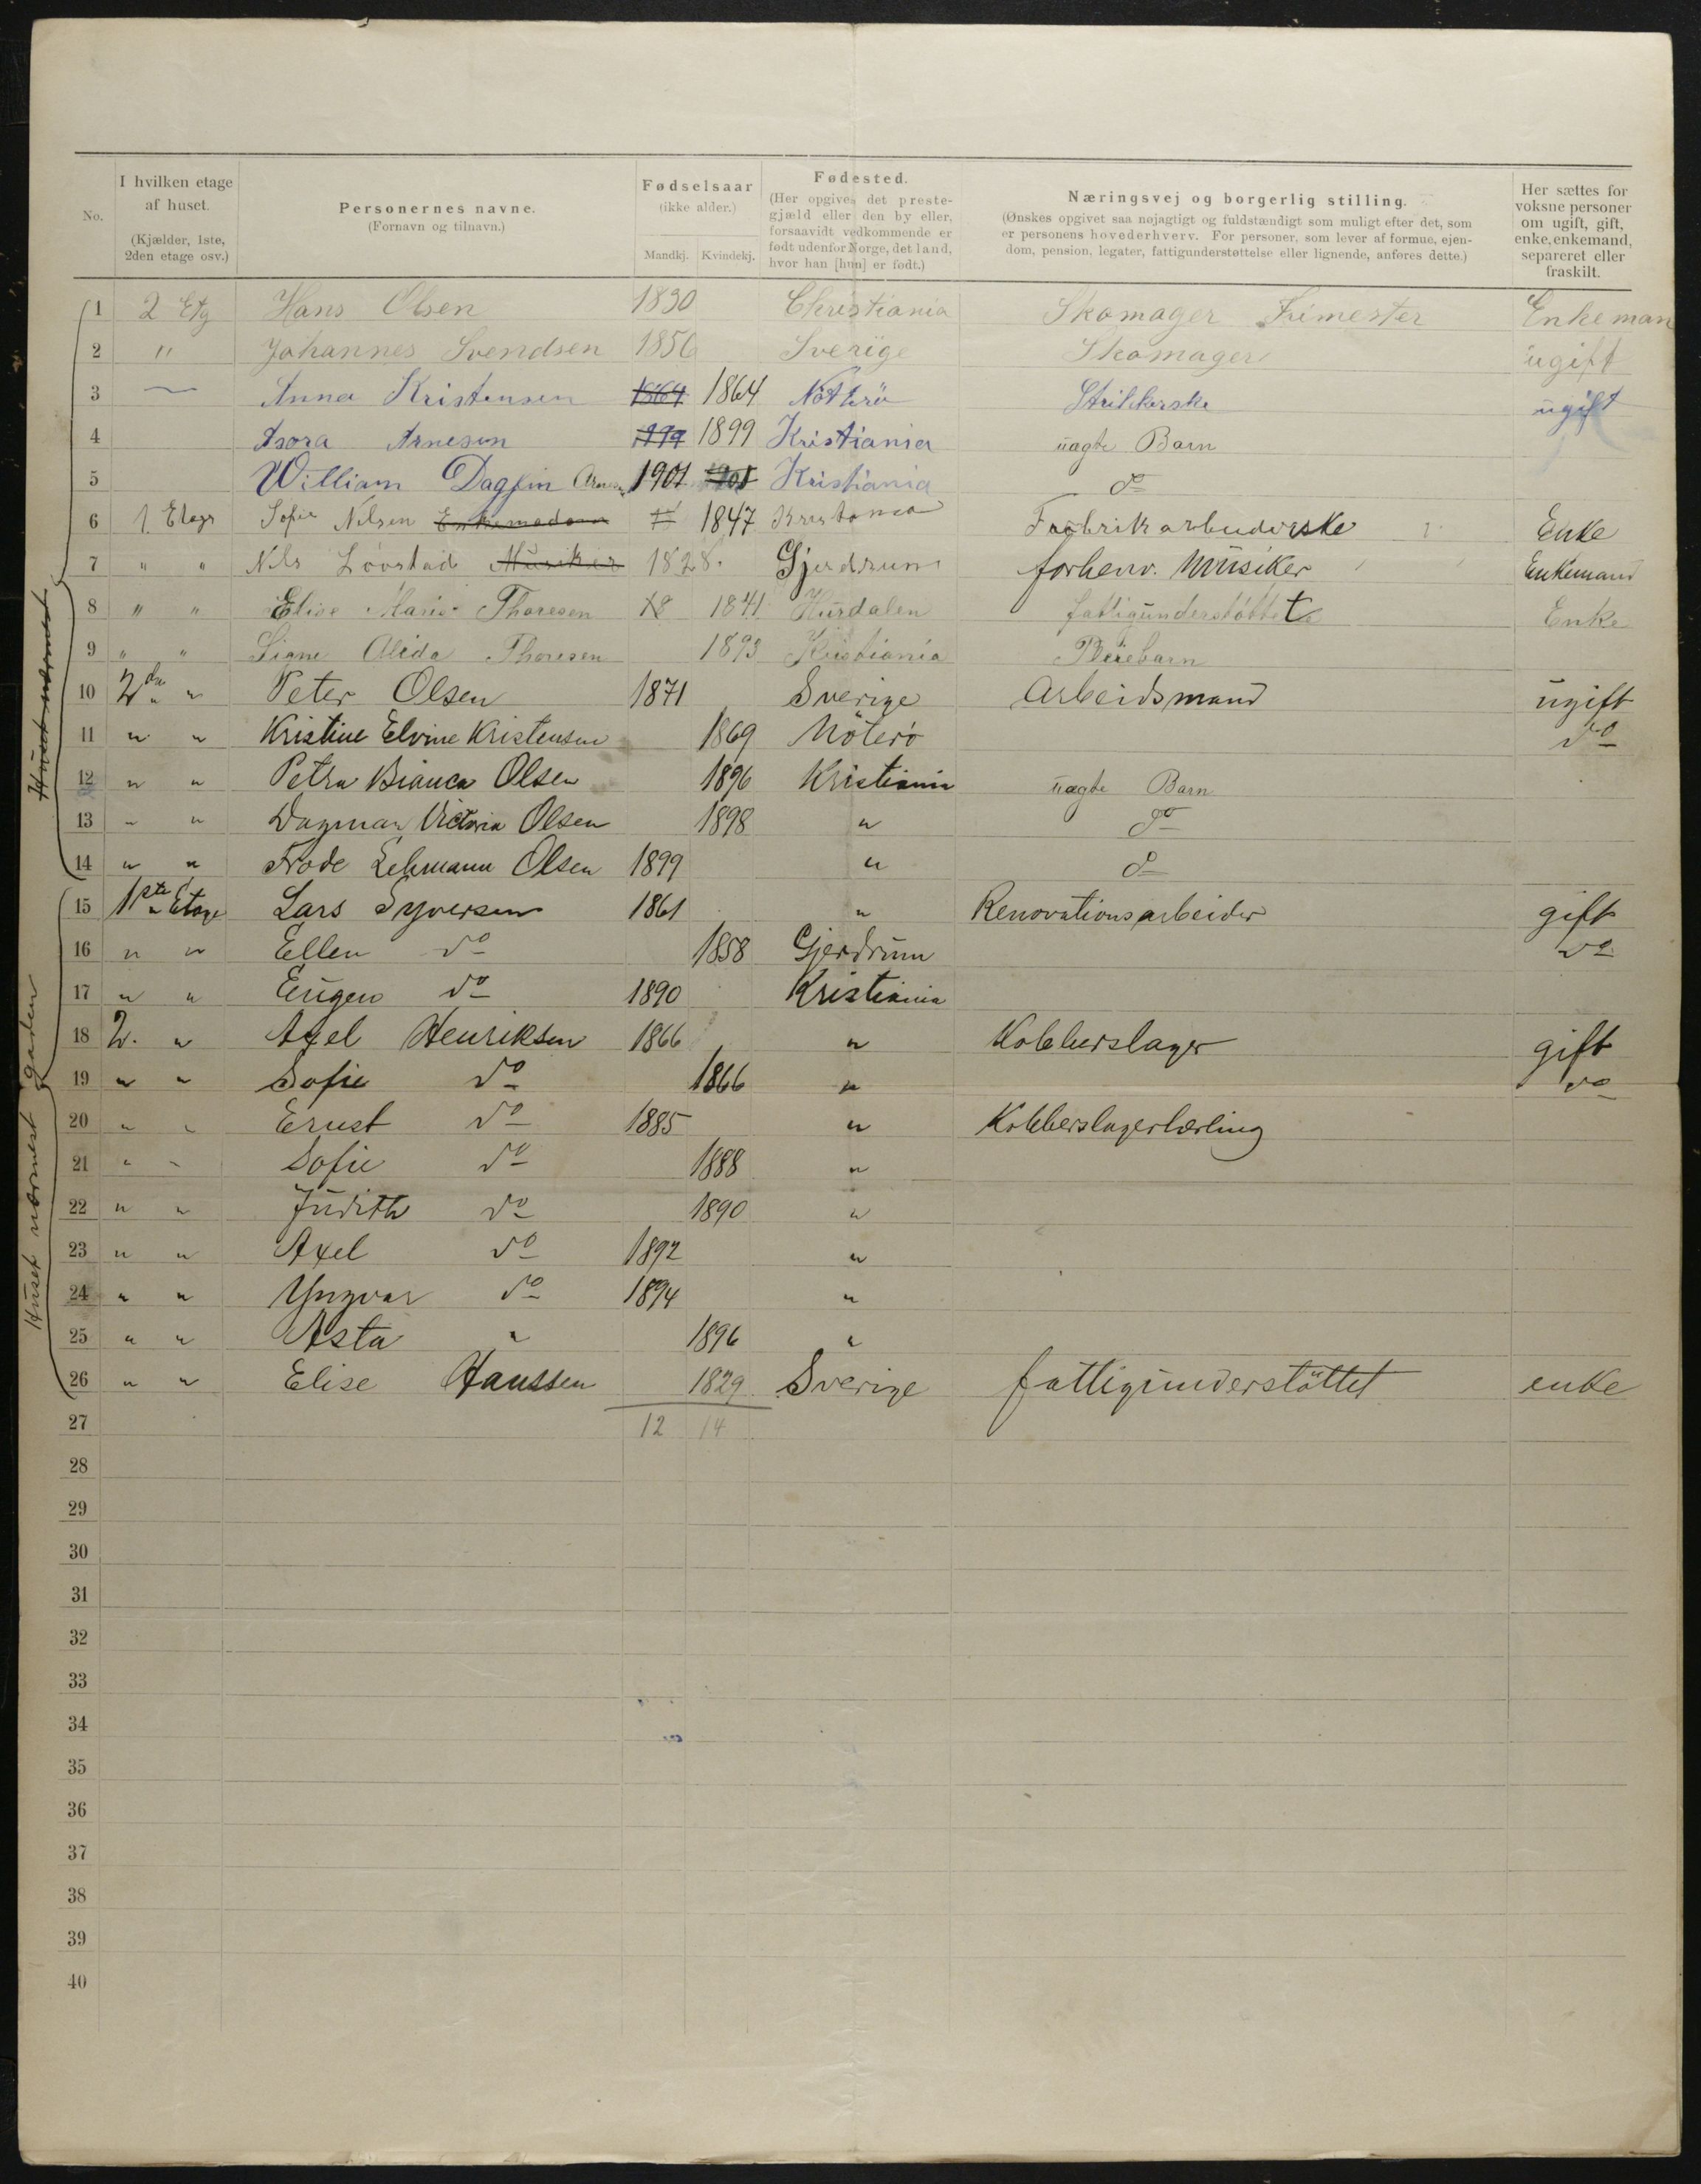 No.
I hvilken etage af huset. (Kjælder, 1ste, 2den etage osv.)
Personernes navne. (Fornavn og tilnavn.)
Fødselsaar (ikke alder.)
Mandkj. Kvindekj.
Fødested. (Her opgives det preste-gjæld eller den by eller, forsaavidt vedkommende er født udenfor Norge, det land, hvor han [hun] er født.)
Næringsvej og borgerlig stilling. (Ønskes opgivet saa nøjagtigt og fuldstændigt som muligt efter det, som er personens hovederhverv. For personer, som lever af formue, ejen-dom, pension, legater, fattigunderstøttelse eller lignende, anføres dette.)
Her sættes for voksne personer om ugift, gift, enke, enkemand, separeret eller fraskilt.
1 2 Etg Hans Olsen 1830 Christiania Skomager Enkeman
2 " Johannes Svendsen 1856 Sverige Skomager ugift
3 Anna Kristensen 1864 1864 Nötterö Strikkerske ugift
4 Arnesen 1899 1899 Kristiania uægte Barn
5 William Dagfin Arnesen 1901 1901 Kristiania do
6 1 Etage Sofie Nilsen Enkemadam " 1847 Kristiania Fabrikarbeiderske Enke
7 " " Nils Lövstad Musiker 1828. Gjerdrum forhenv. Musiker Enkemand
8 " " Elise Marie Thoresen 18 1841 Hurdalen fattigunderstøttet Enke
9 " " Signe Alida Thoresen 1893 Kristiania Pleiebarn
10 2den " Peter Olsen 1871 Sverige Arbeidsmand ugift
11 " " Kristine Elvine Kristensen 1869 Nöterö do
12 " " Petra Bianca Olsen 1896 Kristiania uægte Barn
13 " " Dagmar Victoria Olsen 1898 " do
14 " " Frode Lehmann Olsen 1899 " do
15 1ste Etage Lars Syversen 1861 " Renovationsarbeider gift
16 " " Ellen do 1858 Gjerdrum do
17 " " Eugen do 1890 Kristiania
18 2. " Axel Henriksen 1866 " Kobberslager gift
19 " " Sofie do 1866 " do
20 " " Ernst do 1885 " Kobberslagerlærling
21 " " Sofie do 1888 "
22 " " Judith do 1890 "
23 " " Axel do 1892 "
24 " " Yngvar do 1894 "
25 " " Asta " 1896 "
26 " " Elise Hanssen 1829 Sverige fattigunderstöttet enke
27 12 14
28
29
30
31
32
33
34
35
36
37
38
39
40
Huset nærmest
Huset nærmest gaden